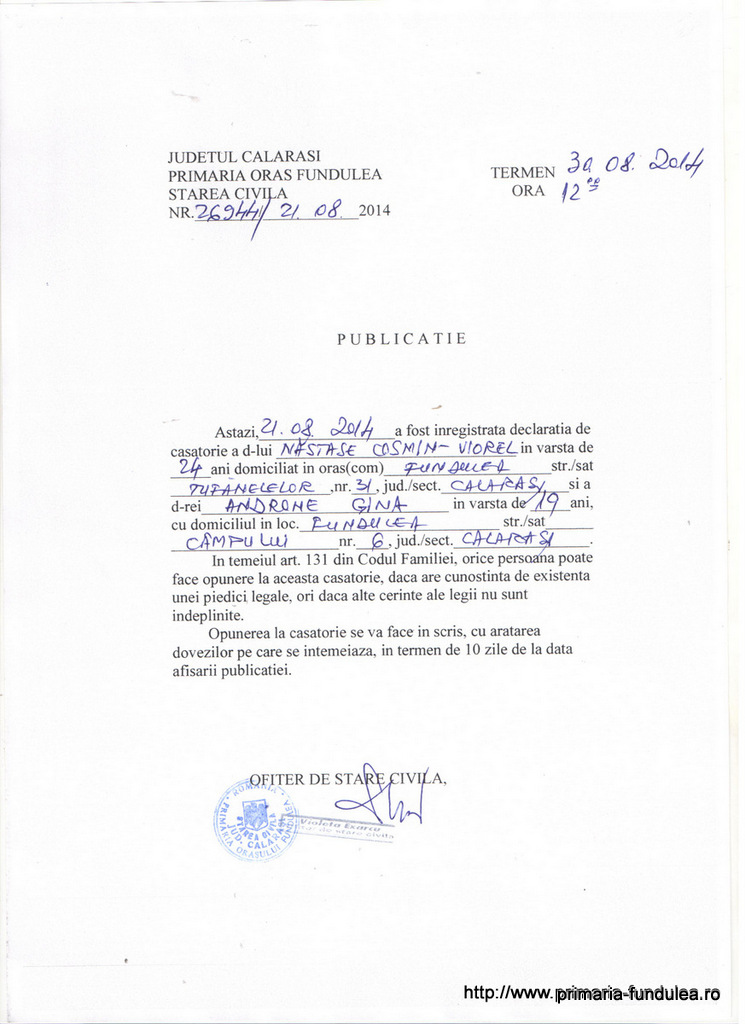 JUDETUL CALARASI
PRIMARIA ORAS FUNDULEA
STAREA CIVILA
NR. 26944/ 21. 08. 2014
TERMEN 30 08. 2014
ORA 12 00
PUBLICATIE
Astazi, 21. 08. 2014 a fost inregistrata declaratia de
casatorie a d-lui NĂSTASE COSMIN-VIOREL in varsta de
24 ani domiciliat in oras(com) FUNDULEA str./sat
TUFĂNELELOR ,nr. 31, jud./sect. CALARASI si a
d-rei ANDRONE GINA in varsta de 19 ani,
cu domiciliul in loc. FUNDULEA str./sat
CÂMPULUI nr. 6, jud./sect. CALARASI .
In temeiul art. 131 din Codul Familiei, orice persoana poate
face opunere la aceasta casatorie, daca are cunostinta de existenta
unei piedici legale, ori daca alte cerinte ale legii nu sunt
indeplinite.
Opunerea la casatorie se va face in scris, cu aratarea
dovezilor pe care se intemeiaza, in termen de 10 zile de la data
afisarii publicatiei.
OFITER DE STARE CIVILA,
ROMANIA
PRIMARIA ORASULUI FUNDULEA
STAREA CIVILA
JUD. CALARASI
Violeta Exarcu
de stare civila
http://www.primaria-fundulea.ro